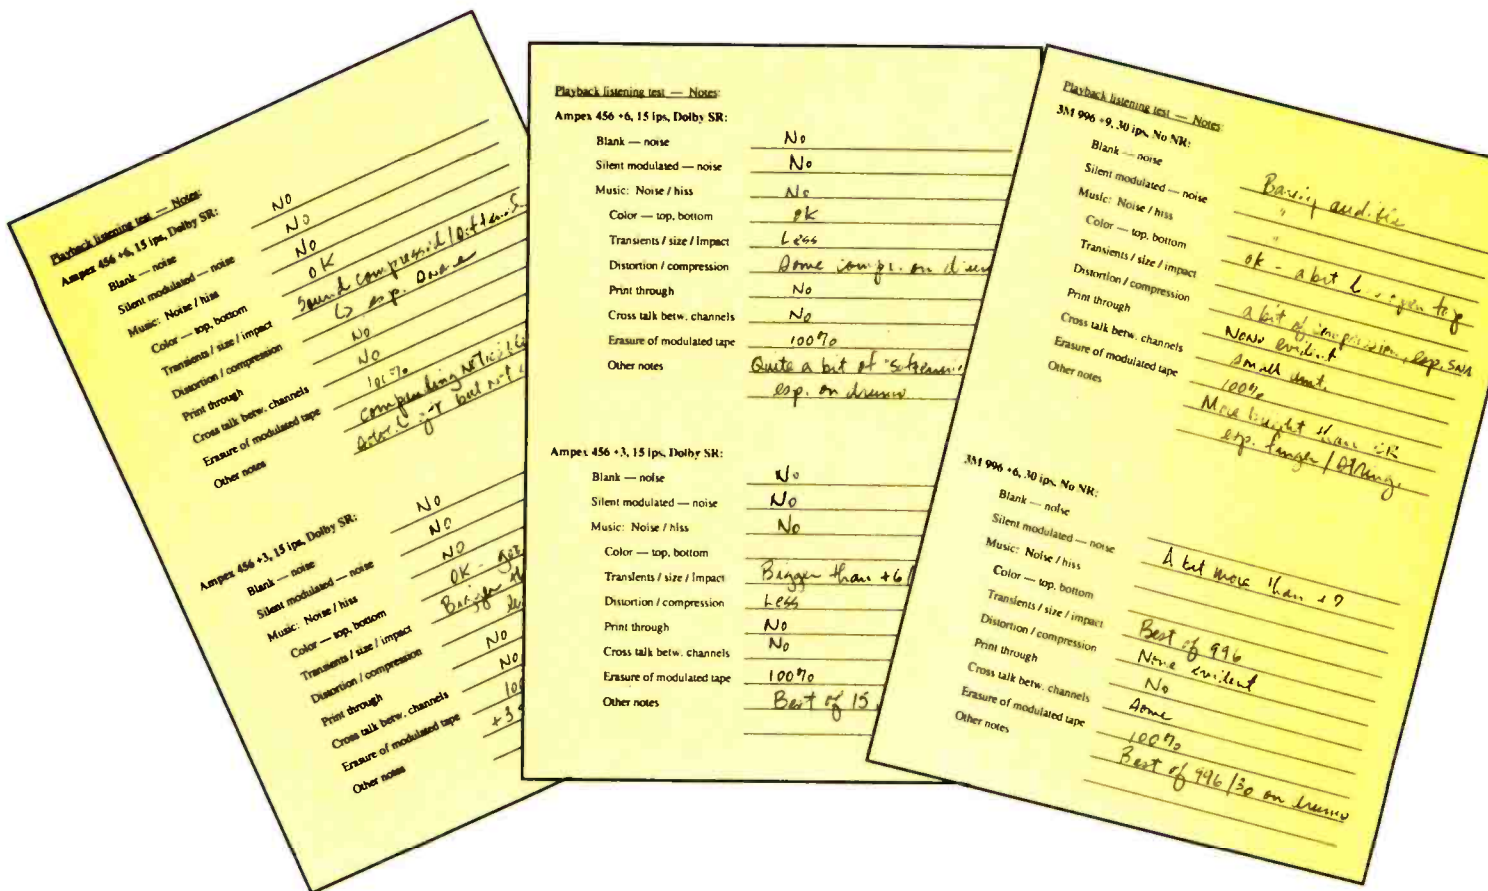 Playback listening test — Notes:
Ampex 456 +6, 15 ips, Dolby SR:
Blank — noise No
Silent modulated — noise No
Music: Noise / hiss No
Color — top, bottom OK
Transients / size / impact Sound compressed /
Distortion / compression esp. snare
Print through No
Cross talk betw. channels No
Erasure of modulated tape 100%
Other notes companding
but not
Ampex 456 +3, 15 ips, Dolby SR:
Blank — noise No
Silent modulated — noise No
Music: Noise / hiss No
Color — top, bottom OK -
Transients / size / impact Bigger
Distortion / compression
Print through No
Cross talk betw. channels No
Erasure of modulated tape
Other notes
Playback listening test — Notes:
Ampex 456 +6, 15 ips, Dolby SR:
Blank — noise No
Silent modulated — noise No
Music: Noise / hiss No
Color — top, bottom OK
Transients / size / Impact Less
Distortion / compression Some compr. on
Print through No
Cross talk betw. channels No
Erasure of modulated tape 100%
Other notes Quite a bit of
esp. on drums
Ampex 456 +3, 15 ips, Dolby SR:
Blank — noise No
Silent modulated — noise No
Music: Noise / hiss No
Color — top, bottom
Transients / size / Impact Bigger than +6
Distortion / compression Less
Print through No
Cross talk betw. channels No
Erasure of modulated tape 100%
Other notes Best of 15
Playback listening test — Notes:
3M 996 +9, 30 ips, No NR:
Blank — noise Barely audible
Silent modulated — noise "
Music: Noise / hiss "
Color — top, bottom OK - a bit top
Transients / size / impact
Distortion / compression a bit of compression, esp.
Print through None evident
Cross talk betw. channels small amt.
Erasure of modulated tape 100%
Other notes More than SR
esp. finger / string
3M 996 +6, 30 ips, No NR:
Blank — noise A bit more than +9
Silent modulated — noise
Music: Noise / hiss
Color — top, bottom
Transients / size / impact Best of 996
Distortion / compression None evident
Print through No
Cross talk betw. channels Some
Erasure of modulated tape 100%
Other notes Best of 996 / 30 on drums